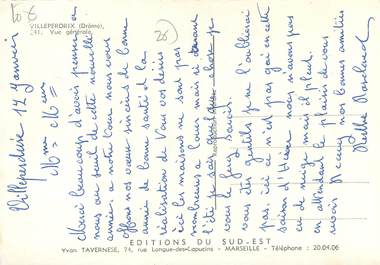 VILLEPERDRIX (Drôme)
241. Vue générale
Villeperdrix 17 Janvier
Mme et Mr
Merci beaucoup d'avoir penser à
nous au seuil de cette nouvelle
année a notre tour nous vous
offrons nos vœux sincères de bonne
année de bonne santé et la
réalisation de tous vos désirs
ici les maisons ne sont pas
nombreuses a louer mais de
l'été je sais quelque chose je
vous le ferai savoir.
vous êtes gentils je ne l'oublierai
pas, ici ce n'est pas gai en cette
saison d'Hiver nous n'avons pas
eu de neige mais il pleut.
en attendant le plaisir de vous
revoir Recevez nos bonnes amitiés
EDITIONS DU SUD-EST
Yvan TAVERNESE, 74, rue Longue-des-Capucins - MARSEILLE - Téléphone : 20.04.06